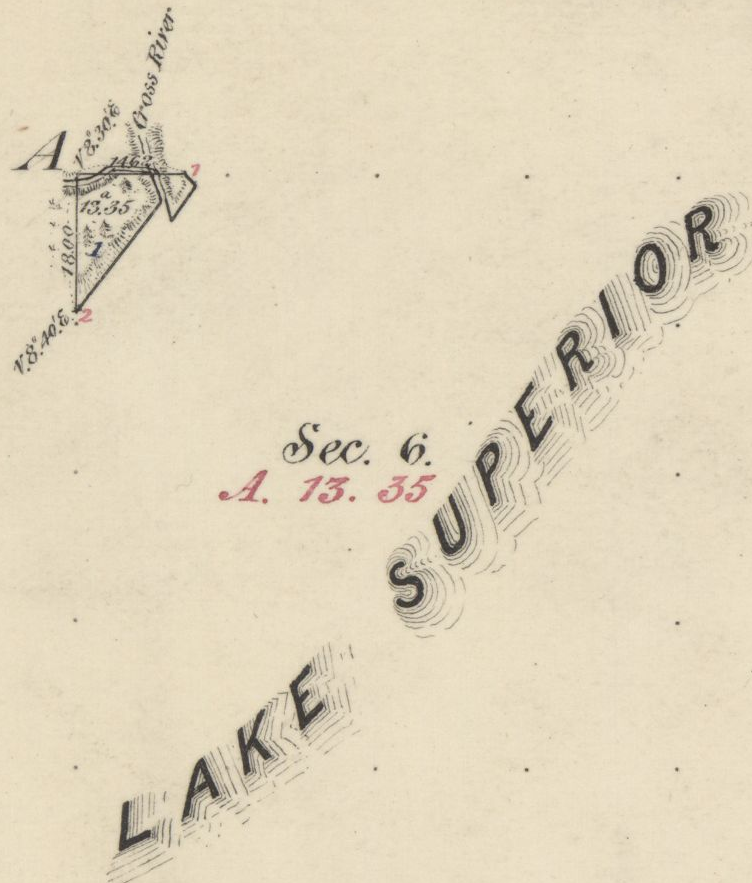 Cross River
V.8°.30'.E
A
14.62
1
a
13.35
18.00
1
2
V.8°.40'.E
Sec. 6.
A. 13. 35
LAKE SUPERIOR